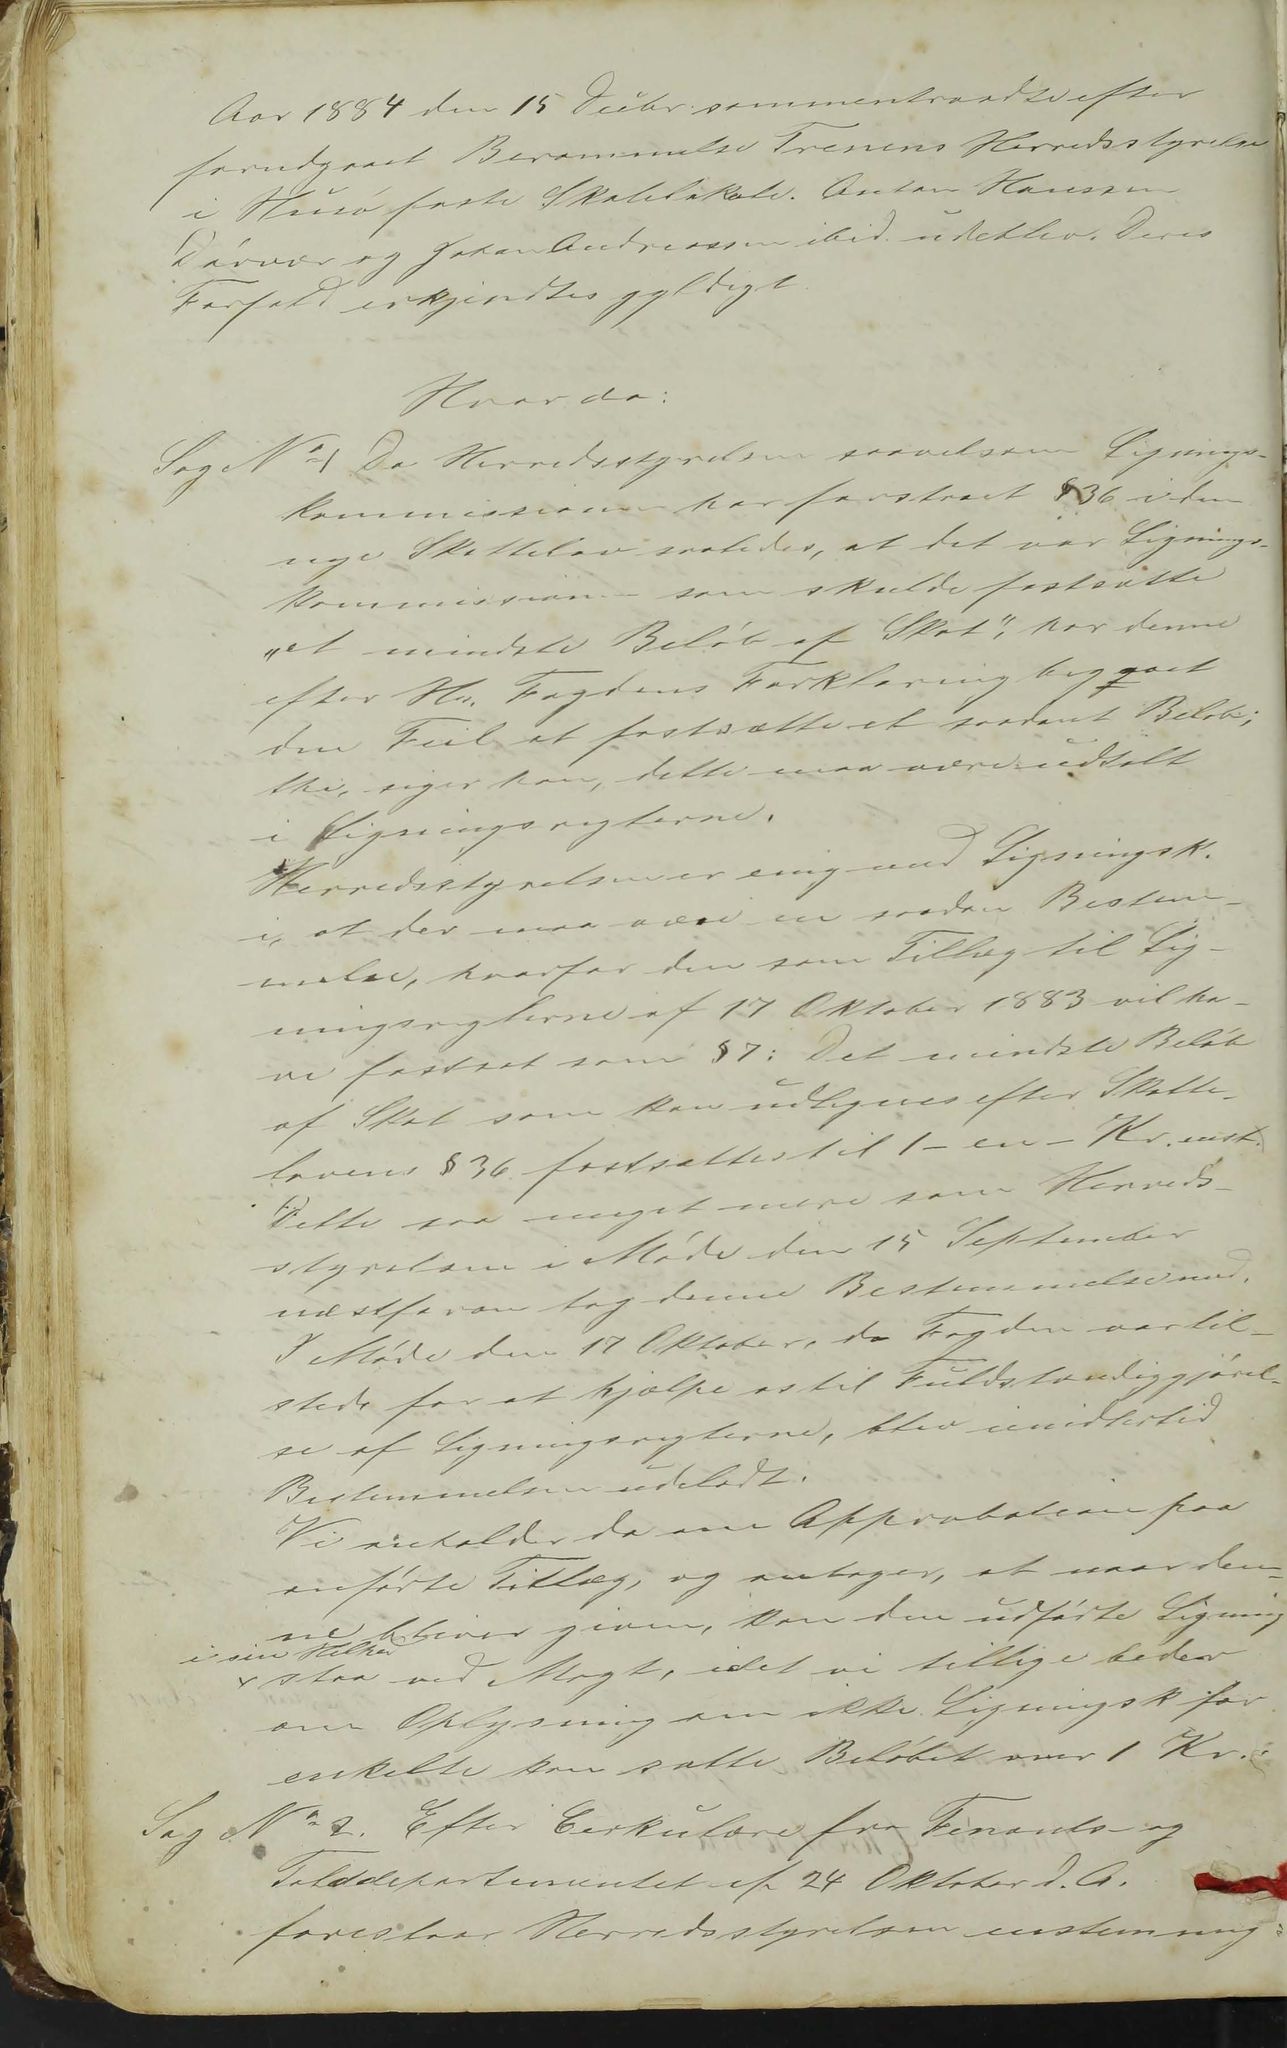 Aar 1884 den 15 Decbr. sammentraadte efter
forudgaaet Berammelse Trænens Herredsstyrelse
i Husø faste Skolelokale. Anton Hanssen
Dørvær og Johan Andreassen ibid. udeblev. Deres
Forfald erkjendtes gyldigt.
Hvorda:
Sag No 1 Da Herredsstyrelsen saavelsom Lignings-
kommissionen har forstaaet § 36 i den
nye Skattelov saaledes, at det var Lignings-
kommissionen som skulde fastsætte
"et mindste Beløb af Skat", har denne
efter Hr. Fogdens Forklaring begaaet
den Feil at fastsætte et saadant Beløb;
thi, siger han, dette maa være udtalt
i Ligningsreglerne.
Herredsstyrelsen er enig med Ligningsk.
i, at der maa være en saadan Bestem-
melse, hvorfor den som Tillæg til Lig-
ningsreglerne af 17 Oktober 1883 vil ha-
ve fastsat som § 7: Det mindste Beløb
af Skat som kan udlignes efter Skatte-
lovens § 36 fastsættes til 1 – en – Kr. enst.
Dette saa meget mere som Herreds-
styrelsen i Møde den 15 September
næstforan tog denne Bestemmelse med.
I Møde den 17 Oktober, da Fogden var til-
stede for at hjælpe os til Fuldstændiggjørel-
se af Ligningsreglerne, blev imidlertid
Bestemmelsen udeladt.
Vi anholder da om Approbation paa
anførte Tillæg, og antager, at naar den-
ne bliver given, kan den udførte Ligning
i sin Helhed
x staa ved Magt, idet vi tillige beder
om Oplysning om ikke Ligningsk for
enkelte kan sætte Beløbet over 1 Kr.
Sag No 2. Efter Cirkulære fra Finants- og
Tolddepartementet af 24 Oktober d. A.
foreslaar Herredsstyrelsen enstemmig: